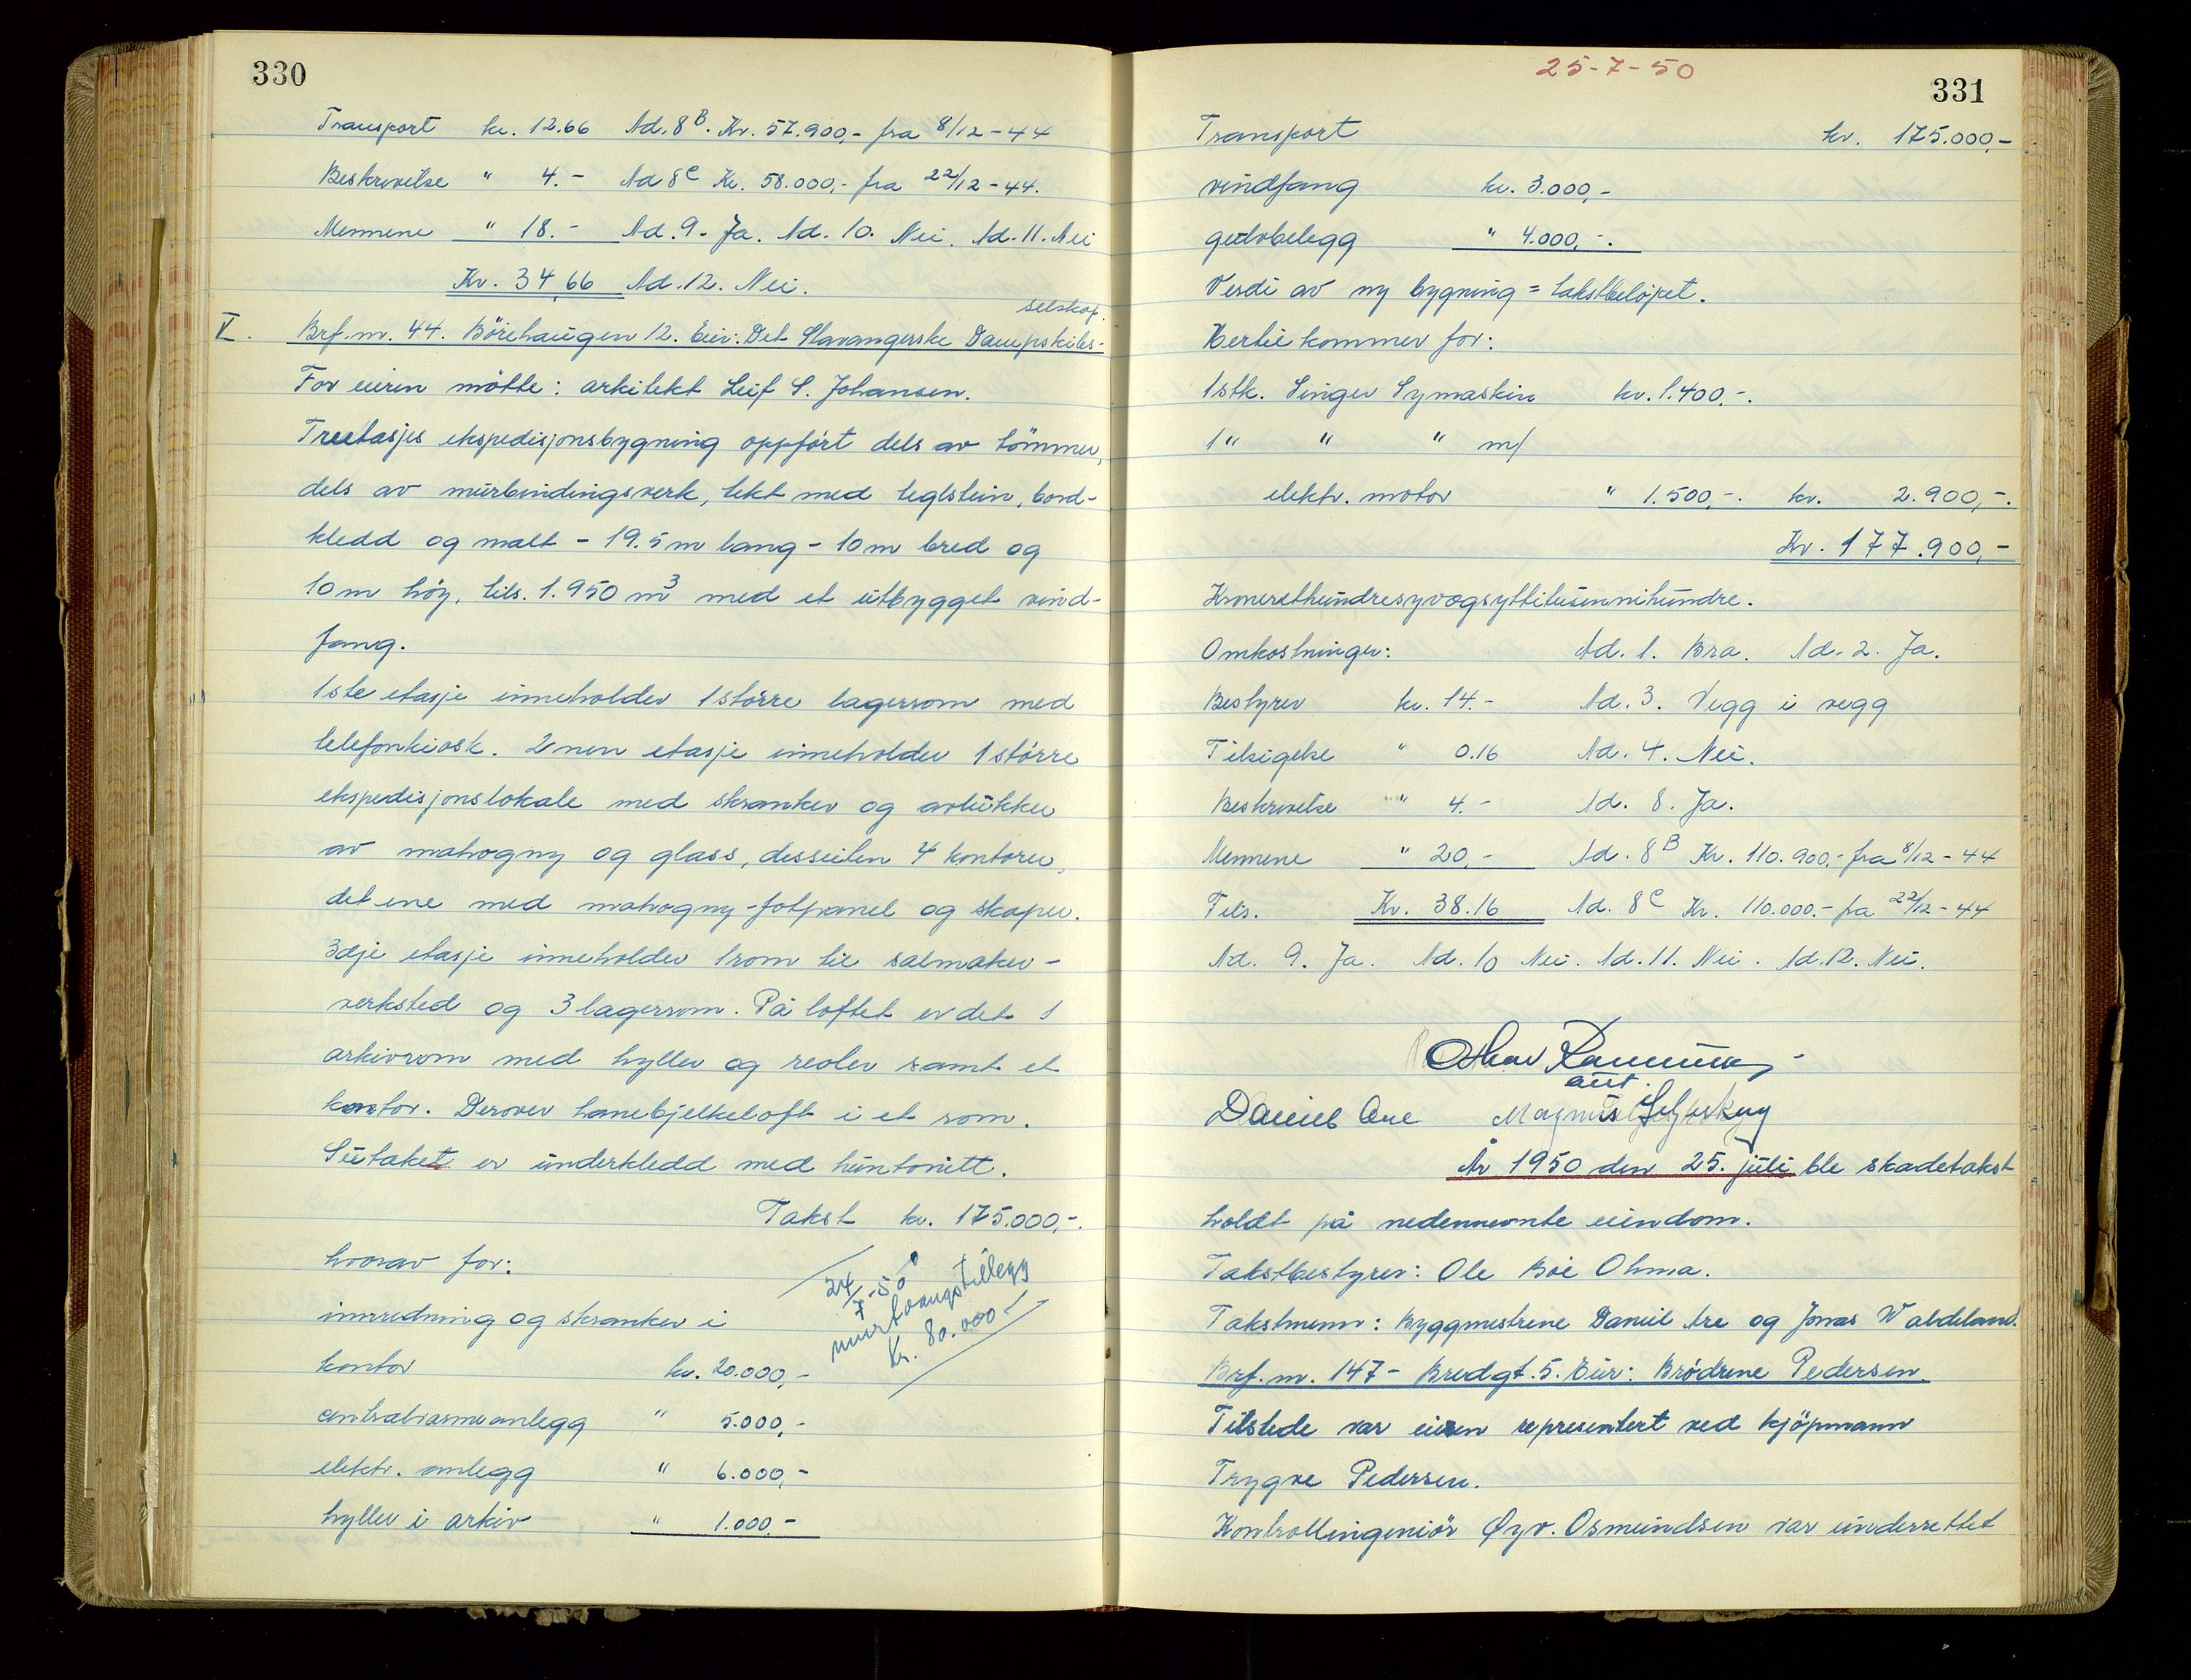 330
Transport kr. 12.66 Ad. 8B. Kr. 57.900,- fra 8/12-44
Beskrivelse " 4.- Ad 8C Kr. 58.000,- fra 22/12-44.
Mennene " 18.- Ad. 9. Ja. Ad. 10. Nei. Ad. 11. Nei
Kr. 34,66 Ad. 12. Nei.
selskap.
V. Brf. nr. 44. Börehaugen 12. Eier: Det Stavangerske Dampskibs-
For eieren møtte: arkitekt Leif S. Johansen.
Treetasjes ekspedisjonsbygning oppført dels av tömmer,
dels av murbindingsverk, tekt med teglstein, bord-
kledd og malt - 19.5 m lang - 10 m bred og
10 m høy, tils. 1.950 m3 med et utbygget vind-
fang.
1ste etasje inneholder 1 større lagerrom med
telefonkiosk. 2nen etasje inneholder 1 større
ekspedisjonslokale med skranker og avlukker
av mahogny og glass, dessuten 4 kontorer,
det ene med mahogny-fotpanel og skaper.
3dje etasje inneholder 1 rom til salmaker-
verksted og 3 lagerrom. På loftet er det 1
arkivrom med hyller og reoler samt et
kontor. Derover hanebjelkeloft i et rom.
Sutaket er underkledd med huntonitt.
Takst kr. 175.000,-.
hvorav for:
innredning og skranker i
kontor kr. 20.000,-
centralvarmeanlegg " 5.000,-
elektr. anlegg " 6.000,-
hyller i arkiv " 1.000,-
24/7-50
murtvangstillegg
kr. 80.000,-
25-7-50
331
Transport kr. 175.000,-
vindfang kr. 3.000,-
gulvbelegg " 4.000,-.
Verdi av ny bygning = takstbeløpet.
Hertil kommer for:
1 stk. Singer Symaskin kr. 1.400,-.
1 " " " m/
elektr. motor " 1.500,-. kr. 2.900,-.
Kr. 177.900,-
Kronerethundresyvogsyttitusennihundre.
Omkostninger: Ad. 1. Bra. Ad. 2. Ja.
Bestyrer kr. 14.- Ad. 3. Vegg i vegg
Tilsigelse " 0.16 Ad. 4. Nei.
Beskrivelse " 4.- Ad. 8. Ja.
Mennene " 20,- Ad. 8B Kr. 110.900,- fra 8/12-44
Tils. Kr. 38.16 Ad. 8C Kr. 110.000.- fra 22/12-44
Ad. 9. Ja. Ad. 10 Nei. Ad. 11. Nei. Ad. 12. Nei.
aut.
Daniel Are Magnus
År 1950 den 25. juli ble skadetakst
holdt på nedennevnte eiendom.
Takstbestyrer: Ole Boie Ohma.
Takstmenn: Byggmestrene Daniel Are og Jonas Waldeland.
Brf. nr. 147 - Bredgt. 5. Eier: Brødrene Pedersen.
Tilstede var eieren representert ved kjöpmann
Trygve Pedersen.
Kontrollingeniör Øyv. Osmundsen var underrettet